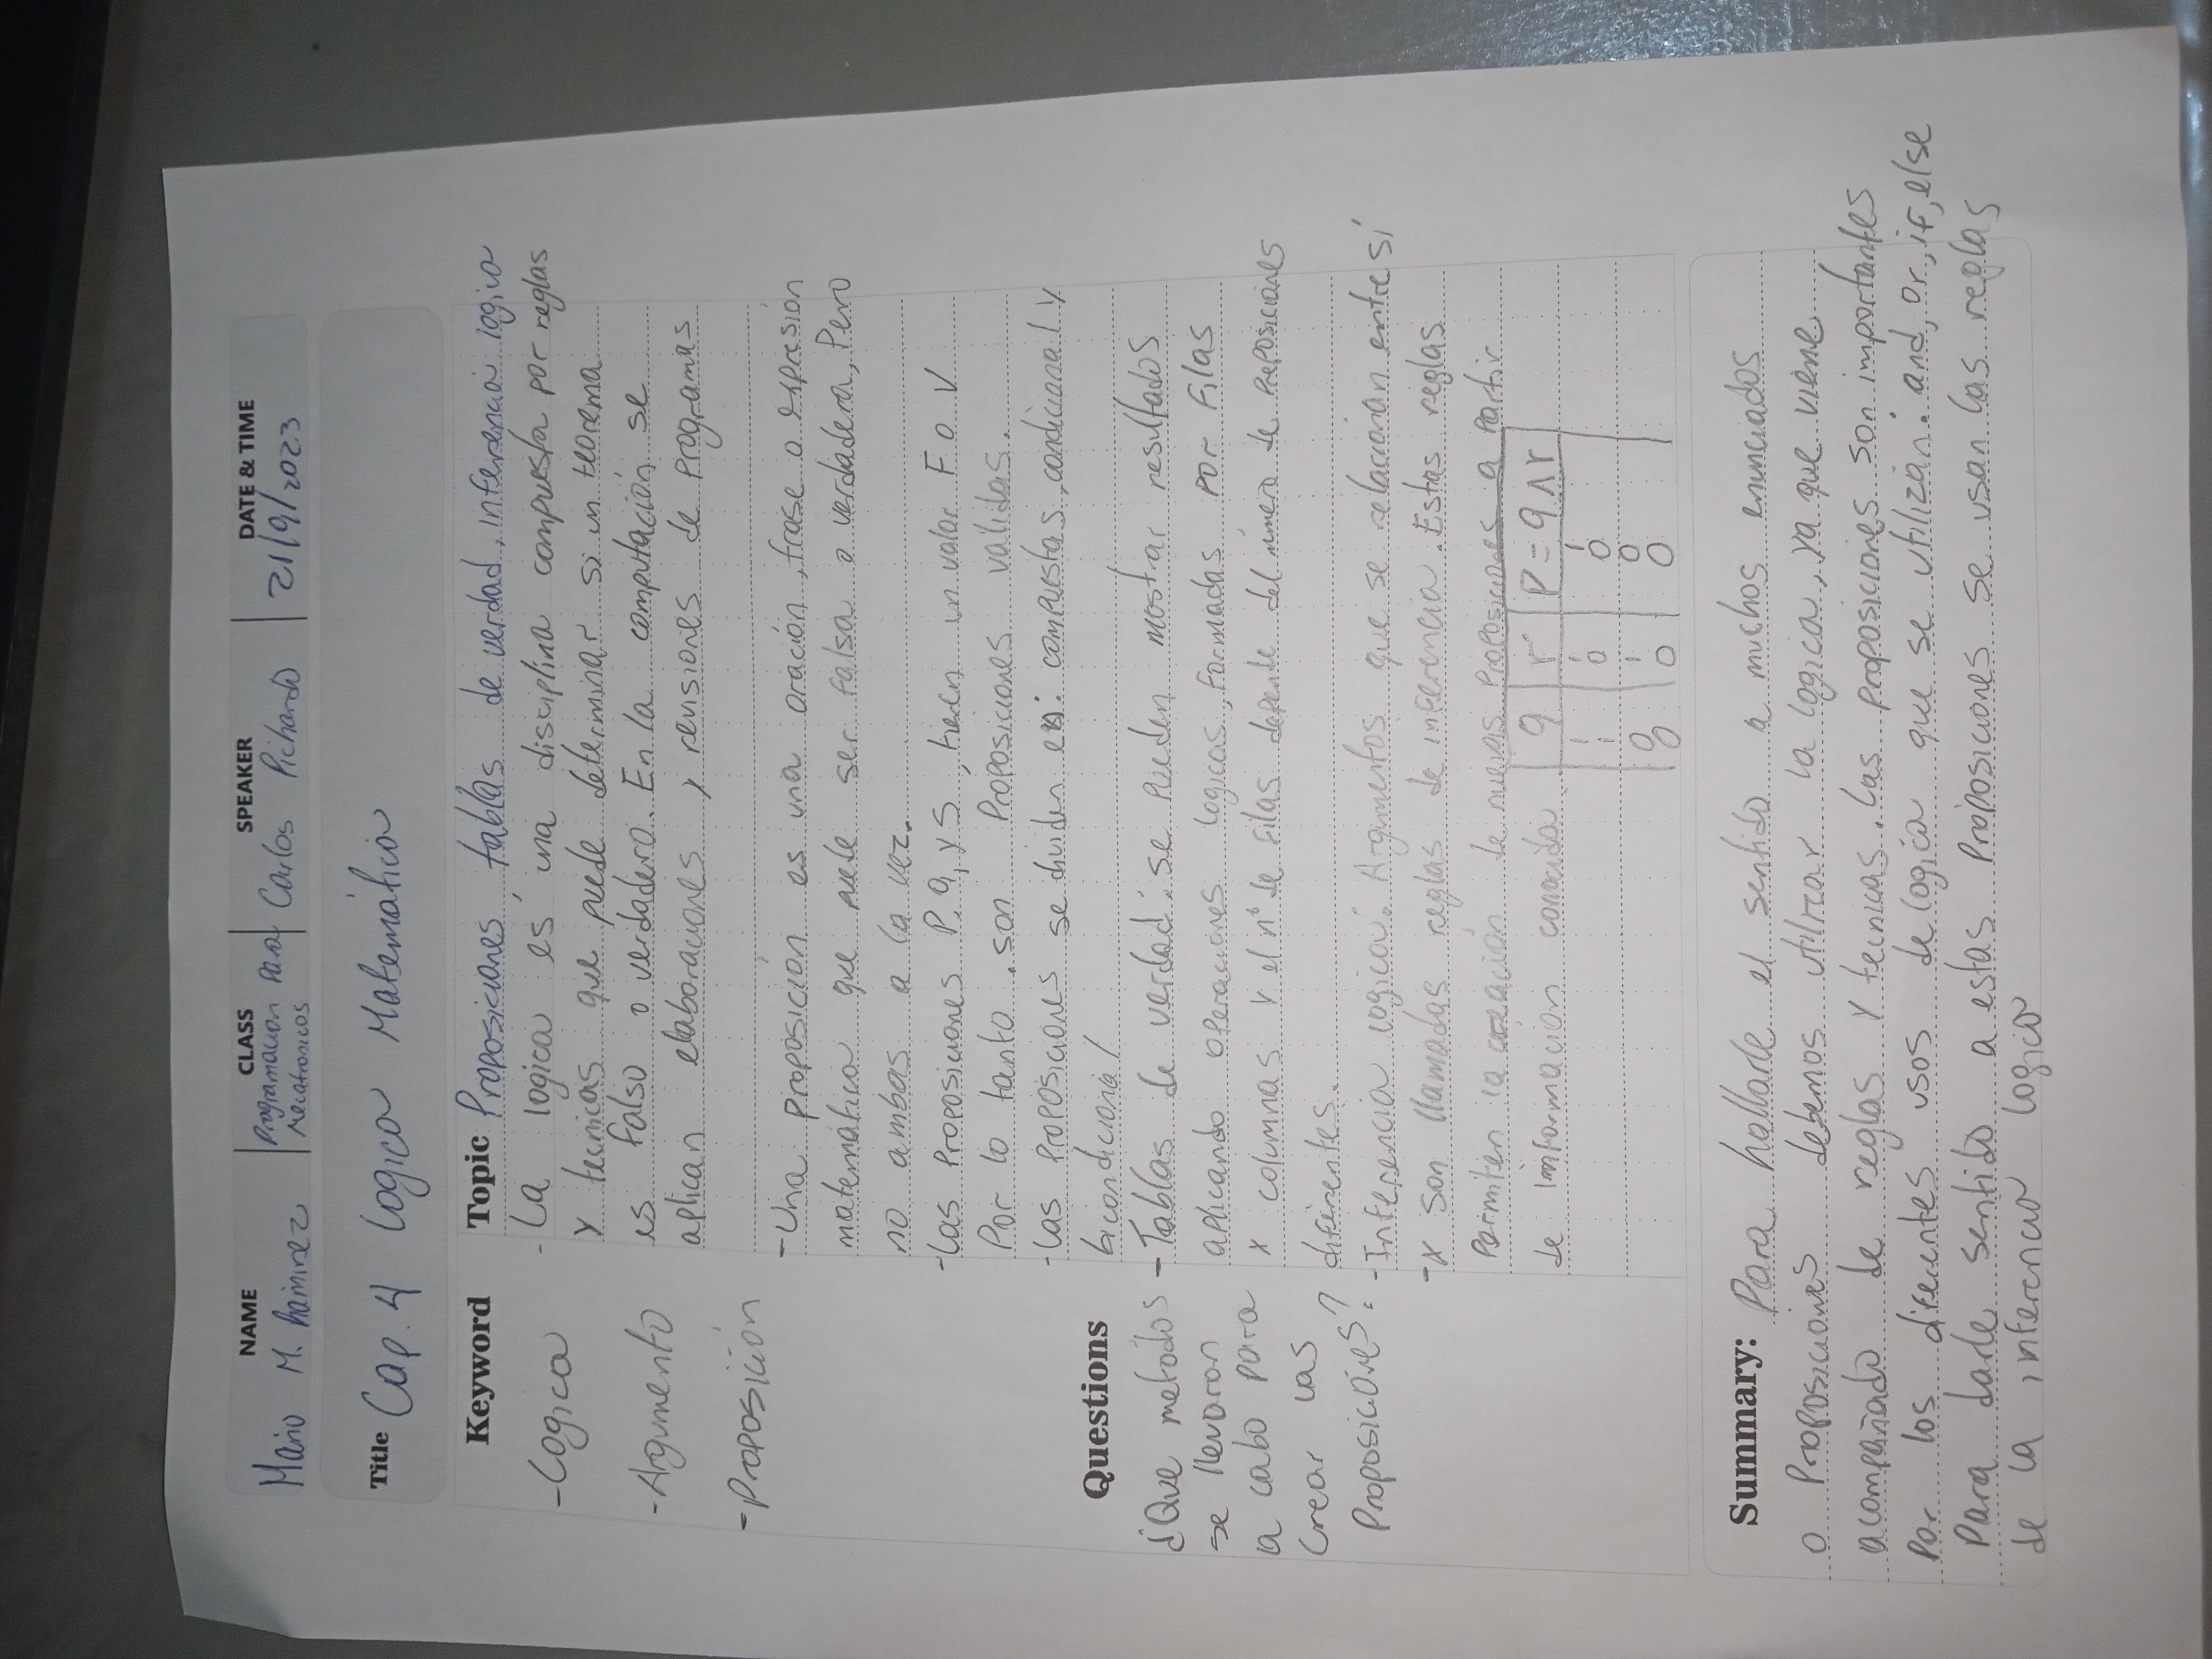 NAME CLASS SPEAKER DATE & TIME
Mario M. Ramirez Programacion Para Mecatronicos Carlos Pichardo 21/9/2023
Title Cap. 4 Logica Matemática
Keyword
-Logica
-Argumento
-Proposición
Topic Proposiciones, tablas de verdad, inferencia logica
-La logica es una disciplina compuesta por reglas
y tecnicas que puede determinar si un teorema
es falso o verdadero. En la computación se
aplican elaboraciones y revisiones de programas
-Una proposición es una oración, frase o expresión
matemática que puede ser falsa o verdadera, Pero
no ambas a la vez.
-Las Proposiciones P, q, y S, tienen un valor F o V
Por lo tanto, son Proposiciones validas.
-Las proposiciones se dividen en: compuestas, condicional y
bicondicional
-Tablas de verdad: se pueden mostrar resultados
aplicando operaciones logicas, formadas por filas
y columnas y el n° de filas depende del número de preposiciones
diferentes.
-Inferencia logica: Argumentos que se relacionan entre sí
-y son llamadas reglas de inferencia. Estas reglas
Permiten la creación de nuevas proposiciones a partir
de información conocida
q r P = q ∧ r
1 1 1
1 0 0
0 1 0
0 0 0
Questions
¿Que metodos
se llevaron
a cabo para
crear las
Proposiciones?
Summary: Para hallarle el sentido a muchos enunciados
o Proposiciones debemos utilizar la logica, ya que viene
acompañado de reglas y tecnicas. Las proposiciones son importantes
por los diferentes usos de logica que se utilizan: and, or, if, else
Para darle sentido a estas Proposiciones se usan las reglas
de la inferencia logica